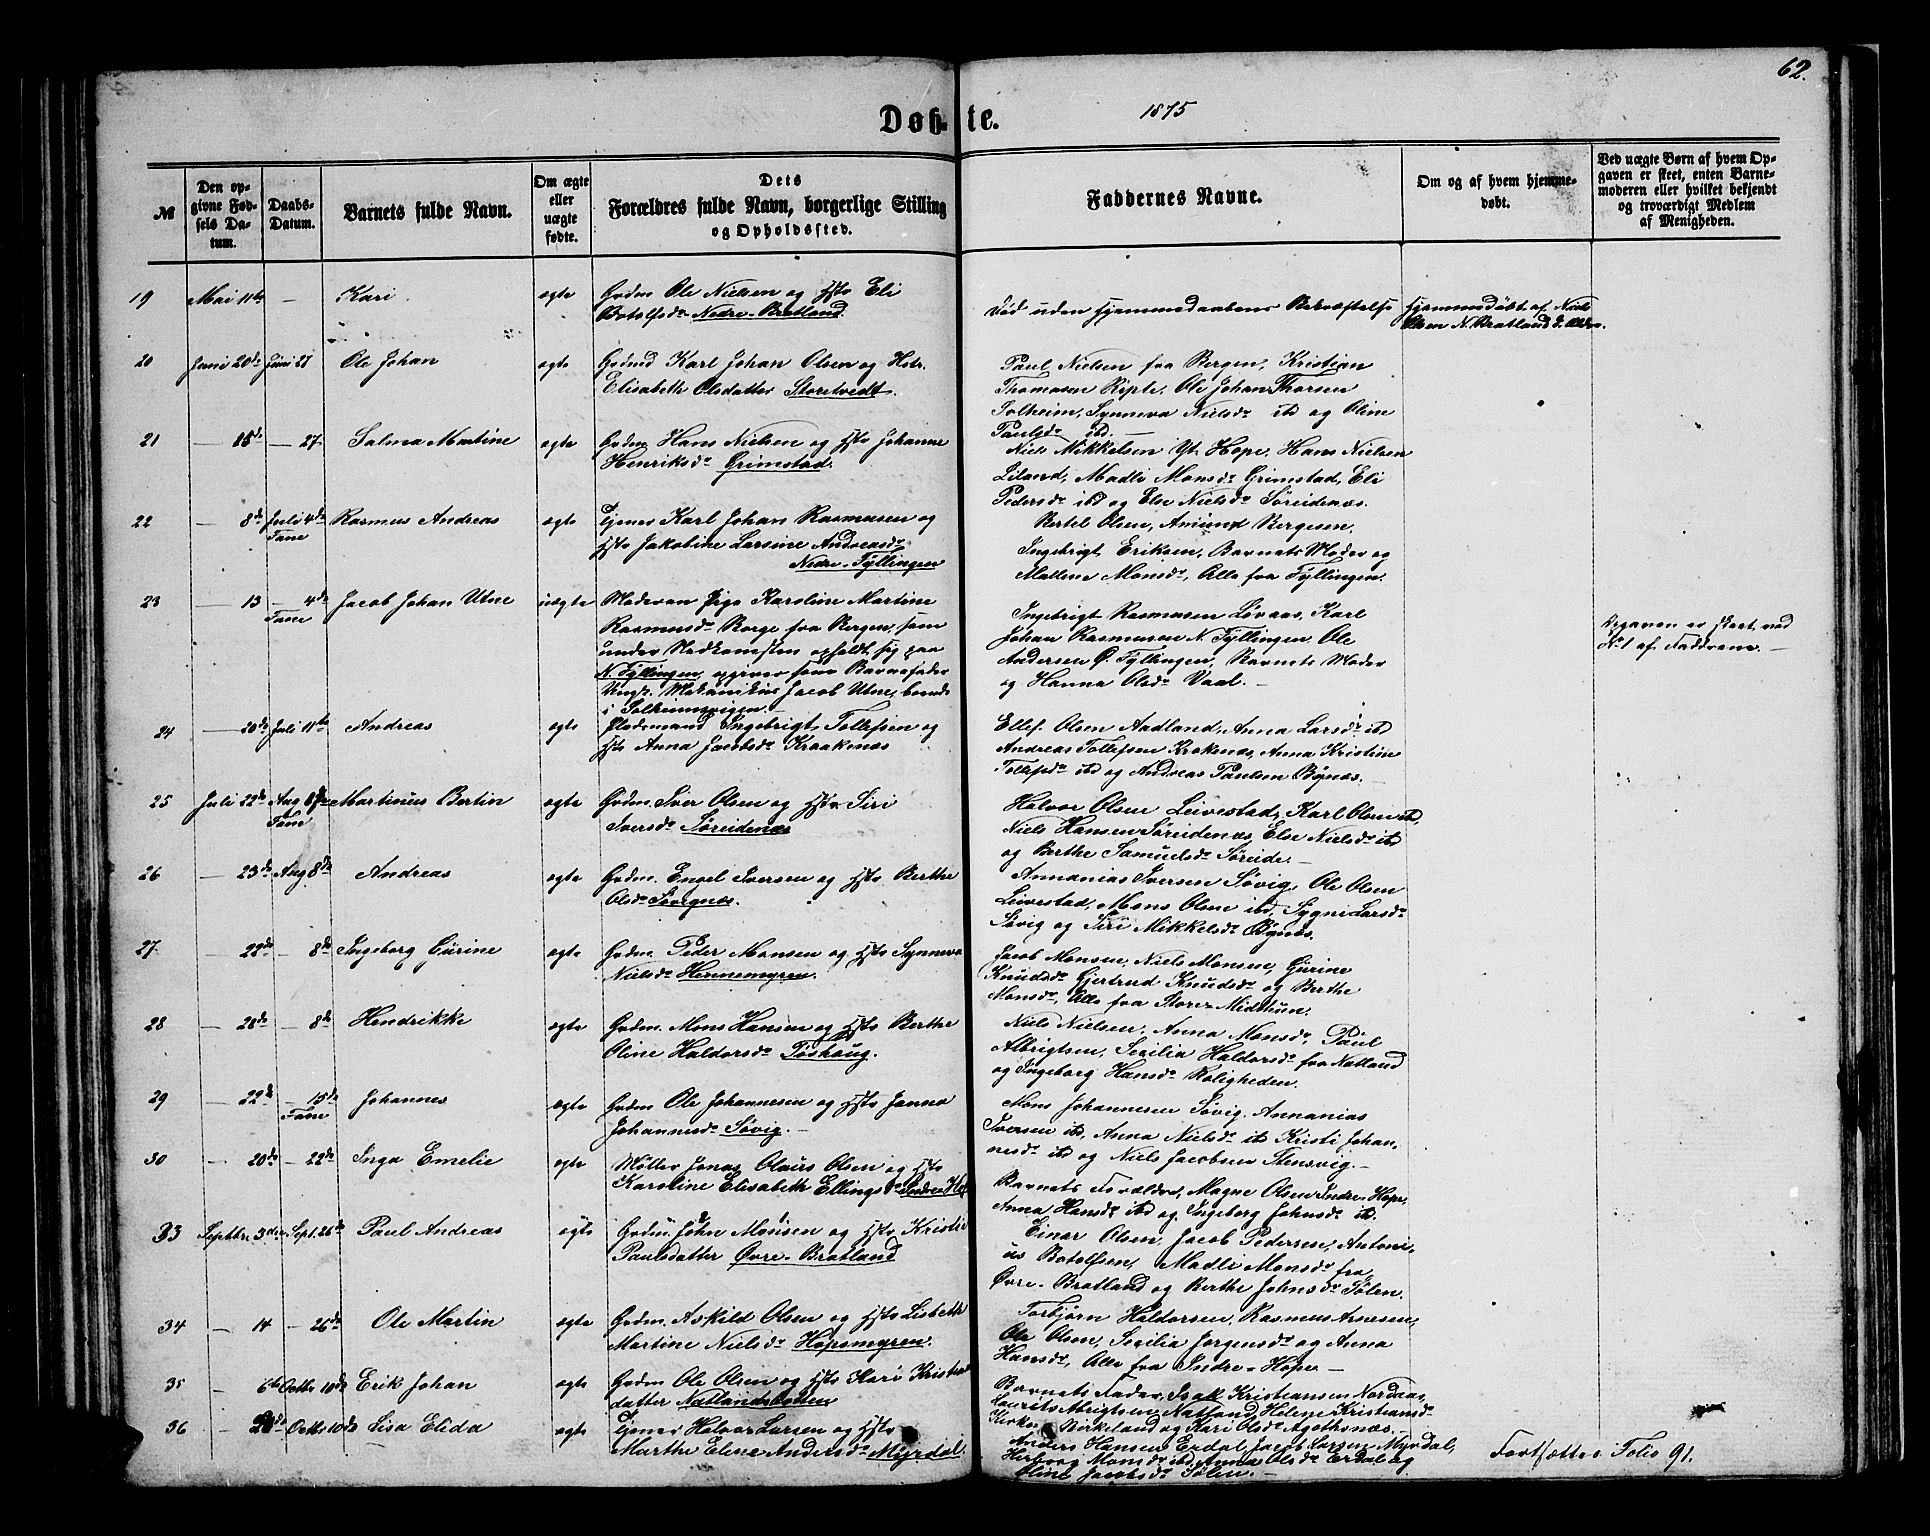 62.
Døb-te.
1875
№
Den op-
givne Fød-
sels Da-
tum.
Daabs-
Datum.
Barnets fulde Navn.
Om ægte
eller
uægte
fødte.
Dets
Forældres fulde Navn, borgerlige Stilling
og Opholdssted.
Faddernes Navne.
Om og af hvem hjemme-
døbt.
Ved uægte Børn af hvem Op-
gaven er skeet, enten Barne-
moderen eller hvilket bekjendt
og troværdigt Medlem
af Menigheden.
19 Mai 11te — Kari. ægte Grdm. Ole Nielsen og Hstr Eli
Botolfsdr Nedre-Bratland.
Død uden Hjemmedaabens Bekræftelse
Hjemmedøbt af Niels
Olsen N. Bratland d. Ældre.
20 Juni 20de Juni 27 Ole Johan ægte Grdmd Karl Johan Olsen og Hstr.
Elisabeth Olsdatter Storetvedt.
Paul Nielsen fra Bergen, Kristian
Thomasen Ripte, Ole Johan Thorsen
Solheim, Synneva Nielsdr ibd og Oline
Paulsdr ibd.
21 — 15de — 27. Salma Martine ægte Grdm. Hans Nielsen og Hstr Johanne
Henriksdr Grimstad.
Niels Mikkelsen Yt. Hope, Hans Nielsen
Liland, Madli Monsdr Grimstad, Eli
Pedersdr ibd og Else Nielsdr Søreidenæs.
22 — 8de Juli 4de Rasmus Andreas ægte Tjener Karl Johan Rasmussen og
Fane
Hstr Jakobine Larsine Andreasdr
Nedre-Tyllingen
Bertel Olsen, Amund Bergesen,
Ingebrigt Eriksen, Barnets Moder og
Mallene Monsdr, Alle fra Tyllingen.
23 — 13 — 4de Jacob Johan Utne uægte Moderen Pige Karoline Martine
Fane
Rasmusdr Borge fra Bergen, som
under Nedkomsten opholdt sig paa
N. Tyllingen, opgiver som Barnefader
Ungk. Mekanikus Jacob Utne, boende
i Solheimsvigen.
Ingebrigt Rasmusen Løvaas, Karl
Johan Rasmusen N. Tyllingen, Ole
Andersen Ø. Tyllingen, Barnets Moder
og Hanna Olsdr Vaal. —
Opgaven er skeet ved
No 1 af Faddrene. —
24 — 20de Juli 11te Andreas ægte Pladsmand Ingebrigt Tollefsen og
Hstr Anna Jacobsdr Kraakenæs
Ellef Olsen Aadland, Anna Larsdr ibd
Andreas Tollefsen Krokenæs, Anna Kristine
Tollefsdr ibd og Andreas Paulsen Bønæs.
25 Juli 22de Aug 8de Martinus Bertin ægte Grdm. Iver Olsen og Hstr Siri
Fane
Iversdr Søreidenæs
Halvor Olsen Leivestad, Karl Olsen ibd,
Niels Hansen Søreidenæs, Else Nielsdr ibd
og Berthe Samuelsdr Søreide.—
26 — 23de Aug 8de Andreas ægte Grdm. Engel Iversen og Hstr Berthe
Olsdr Søvignæs.
Annanias Iversen Søvig, Ole Olsen
Leivestad, Mons Olsen ibd, Sygni Larsdr
Søvig og Siri Mikkelsdr Bønæs.
27. — 22de — 8de Ingeborg Gurine ægte Grdm. Peder Monsen og Hstr Synneva
Nielsdr Hernemyren.
Jacob Monsen, Niels Monsen, Gurine
Knudsdr, Gjertrud Knudsdr og Berthe
Monsdr, Alle fra Store-Midttun.
28 — 28de — 8de Hendrikke ægte Grdm. Mons Hansen og Hstr Berthe
Oline Haldorsdr Toshaug.
Niels Nielsen, Anna Monsdr, Paul
Albrigtsen, Secilia Haldorsdr fra Natland
og Ingeborg Hansdr Roligheden.
29 — 22de — 15de Johannes ægte Grdm Ole Johannesen og Hstr Janna
Fane
Johannesdr Søvig. —
Mons Johannesen Søvig, Annanias
Iversen ibd, Anna Nielsdr ibd Kristi Johan-
nesdr ibd og Niels Jacobsen Stensvig.—
30 — 20de — 22de Inga Emelie ægte Møller Jonas Olaus Olsen og Hstr
Karoline Elisabeth Ellingsdr Indre Hop
Barnets Forældre, Magne Olsen Indre-Hope,
Anna Hansdr ibd og Ingeborg Johnsdr ibd.
33 Septbr. 3die Sept. 26de Paul Andreas ægte Grdm. John Monsen og Hstr Kristie
Paulsdatter Øvre-Bratland
Einar Olsen, Jacob Pedersen, Antoni-
us Botolfsen, Madli Monsdr fra
Øvre-Bratland og Berthe Johnsdr Tølen.
34 — 14 — 26de Ole Martin ægte Grdm. Askild Olsen og Hstr Lisbeth
Martine Nielsdr Hopsmyren.
Torbjørn Haldorsen, Rasmus Arnesen,
Ole Olsen, Secilia Jørgensdr og Anna
Hansdr, Alle fra Indre-Hope —
35 — 6te Octbr 10de Erik Johan ægte Grdm Ole Olsen og Hstr Kari Kristens
datter Natlandsbotten
Barnets Fader, Isak Kristiansen Nordaas,
Laurits Albrigtsen, Natland, Helene Kristiansdr
Kirke-Birkeland og Kari Olsdr Agothsnæs.
36 — 20de Octbr 10de Lisa Elida ægte Tjener Halvor Larsen og Hstr
Marthe Elene Andersdr Myrdal.
Anders Hansen Erdal, Jacob Larsen Myrdal,
Herborg Monsdr ibd, Anna Olsdr Erdal og
Oline Jacobsdr Tølen. —
Fortsættes Folio 91.